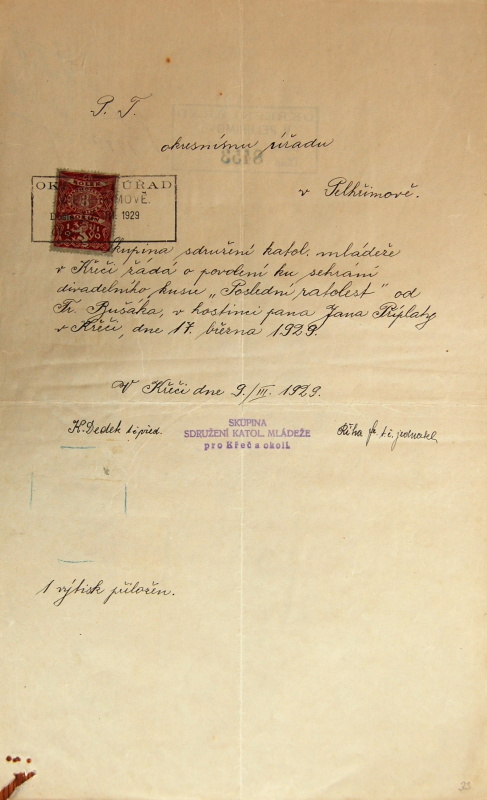 P. T.
okresnímu úřadu
v Pelhřimově.
OKRESNÍ ÚŘAD
1929
Skupina sdružení katol. mládeže
v Křči žádá o povolení ku sehrání
divadelního kusu „Poslední ratolest" od
Fr. Bušáka, v hostinci pana Jana Příplaty
v Křči, dne 17. března 1929.
V Křči dne 9./III. 1929.
K. Dedek t. č. před.
SKUPINA
SDRUŽENÍ KATOL. MLÁDEŽE
pro Křeč a okolí.
Říha Jr. t. č. jednatel
1 výtisk přiložen.